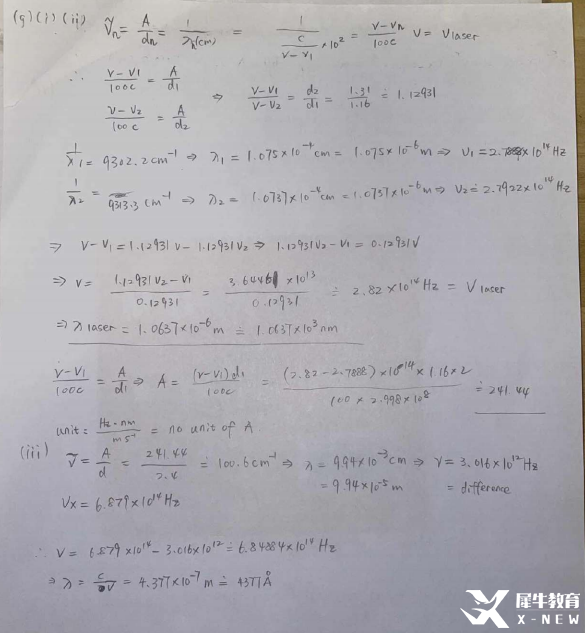 (g)(i)(ii) ṽn = A/dn = 1/λn(cm) = 1/(c/(v-v1) ×10²) = (v-vn)/100c v = v laser
∴ (v-v1)/100c = A/d1
(v-v2)/100c = A/d2 ⇒ (v-v1)/(v-v2) = d2/d1 = 1.31/1.16 = 1.12931
1/λ1 = 9302.2cm⁻¹ ⇒ λ1 = 1.075×10⁻⁴cm = 1.075×10⁻⁶m ⇒ v1 = 2.7888×10¹⁴Hz
1/λ2 = 9313.3cm⁻¹ ⇒ λ2 = 1.0737×10⁻⁴cm = 1.0737×10⁻⁶m ⇒ v2 = 2.7922×10¹⁴Hz
⇒ v-v1 = 1.12931v - 1.12931v2 ⇒ 1.12931v2 - v1 = 0.12931v
⇒ v = (1.12931v2 - v1)/0.12931 = (3.64461×10¹³)/0.12931 ≐ 2.82×10¹⁴Hz = v laser
⇒ λ laser = 1.0637×10⁻⁶m ≐ 1.0637×10³nm
(v-v1)/100c = A/d1 ⇒ A = (v-v1)d1/100c = ((2.82-2.7888)×10¹⁴×1.16×2)/(100×2.998×10⁸) ≐ 241.44
unit = Hz·nm/ms⁻¹ = no unit of A
(iii) ṽ = A/d = 241.44/2.4 ≐ 100.6cm⁻¹ ⇒ λ = 9.94×10⁻³cm ⇒ v = 3.016×10¹²Hz
= 9.94×10⁻⁵m = difference
Vx = 6.879×10¹⁴Hz
∴ v = 6.879×10¹⁴ - 3.016×10¹² ≐ 6.84884×10¹⁴Hz
⇒ λ = c/v = 4.377×10⁻⁷m ≐ 4377Å
犀牛教育
X-NEW